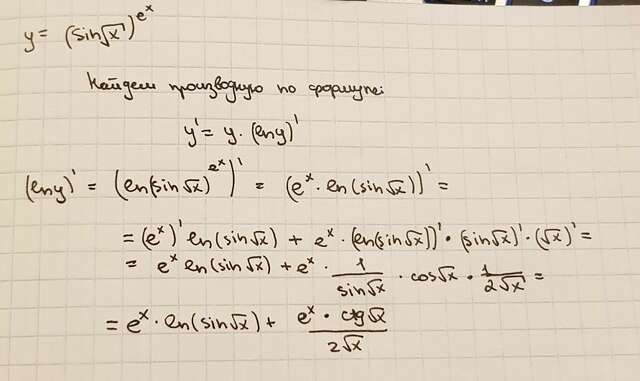 y = (sin√x)^{e^x}
Найдем производную по формуле:
y' = y · (ln y)'
(ln y)' = (ln(sin√x)^{e^x})' = (e^x · ln(sin√x))' =
= (e^x)' ln(sin√x) + e^x · (ln(sin√x))' · (sin√x)' · (√x)' =
= e^x ln(sin√x) + e^x · 1/sin√x · cos√x · 1/2√x =
= e^x · ln(sin√x) + e^x · ctg√x/2√x